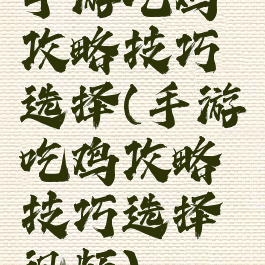 手游吃鸡
攻略技巧
选择(手游
吃鸡攻略
技巧选择
视频)